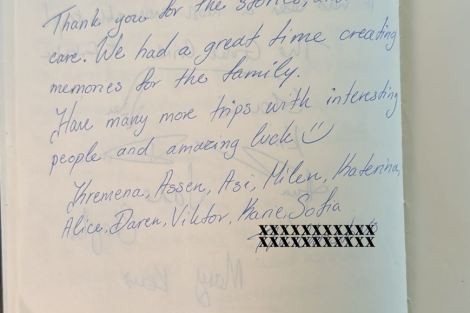 Thank you for the stories, and
care. We had a great time creating
memories for the family.
Have many more trips with interesting
people and amazing luck
Kremena, Assen, Asi, Milen, Katerina,
Alice, Daren, Viktor, Kane, Sofia
XXXXXXXXXXX
XXXXXXXXXXX